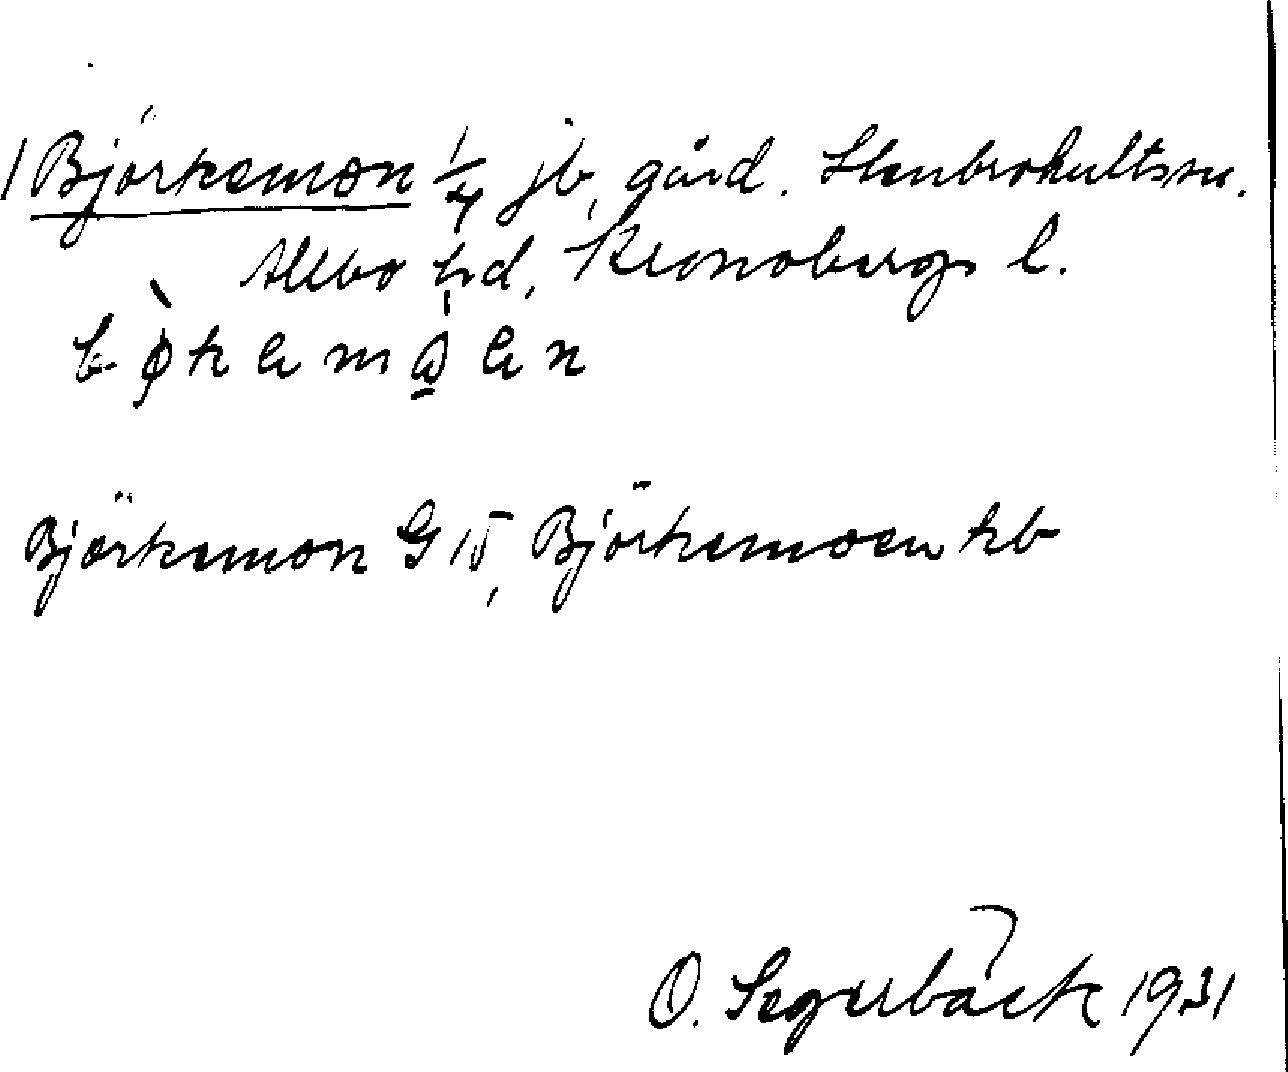 1 Björkemon 1/4 jb, gård. Stenbrohultssn.
Allbo hd, Kronobergs l.
Björkemon G 15, Björkemoen kb
O. Segerbäck 1931